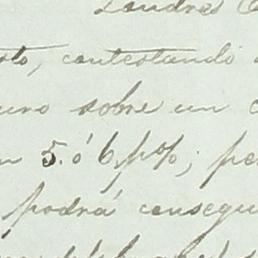 Londres
sto, contestando
uro sobre un
n 5. ó 6 p%; pe
podrá consegu